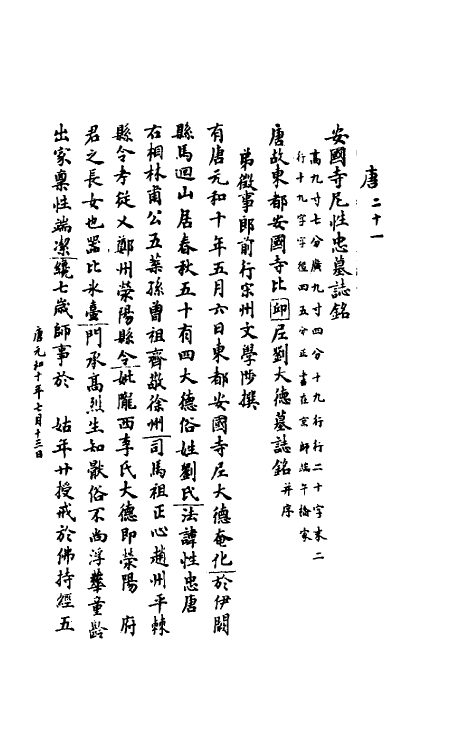 唐二十一
安國寺尼性忠墓誌銘
高九寸七分廣九寸四分十九行行二十字末二
行十九字字徑四五分正書在京師端午橋家
唐故東都安國寺比邱尼劉大德墓誌銘并序
弟徵事郎前行宋州文學陟撰
有唐元和十年五月六日東都安國寺尼大德奄化於伊闕
縣馬迴山居春秋五十有四大德俗姓劉氏法諱性忠唐
右相林甫公五葉孫曾祖齊敬徐州司馬祖正心趙州平棘
縣令考從乂鄭州滎陽縣令妣隴西李氏大德即滎陽 府
君之長女也器比水臺門承高烈生知猒俗不尚浮華童齡
出家稟性端潔纔七歲師事於 姑年廿授戒於佛持經五
唐元和十年七月十三日